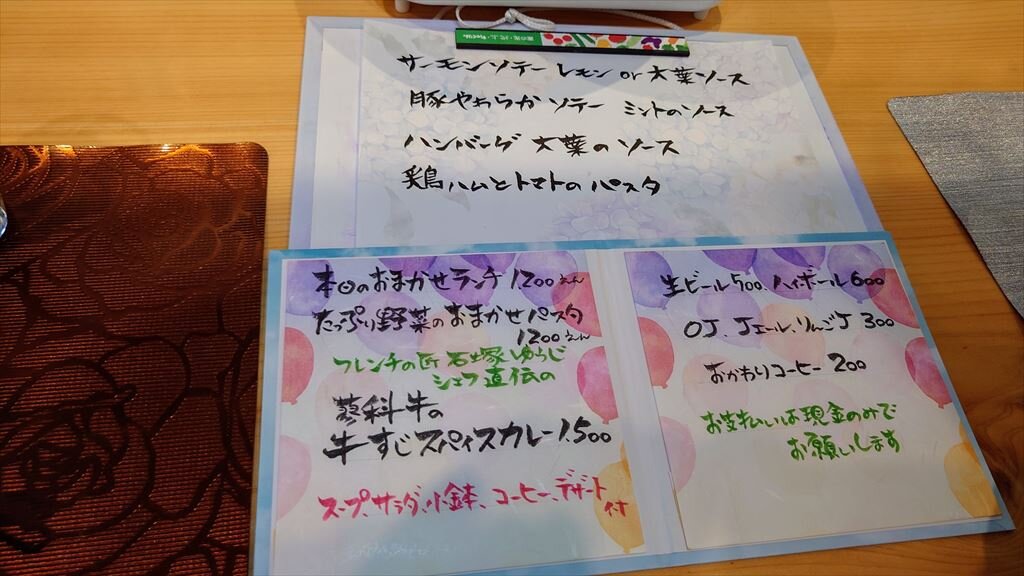 サーモンソテー レモン or 大葉ソース
豚やわらかソテー ミントのソース
ハンバーグ 大葉のソース
鶏ハムとトマトのパスタ
本日のおまかせランチ 1200えん
たっぷり野菜のおまかせパスタ
1200えん
フレンチの匠 石塚ゆうじ
シェフ直伝の
蓼科牛の
牛すじスパイスカレー 1.500
スープ、サラダ、小鉢、コーヒー、デザート
付
生ビール 500、ハイボール 600
OJ、Jエール、りんごJ 300
おかわりコーヒー 200
お支払いは現金のみで
お願いします